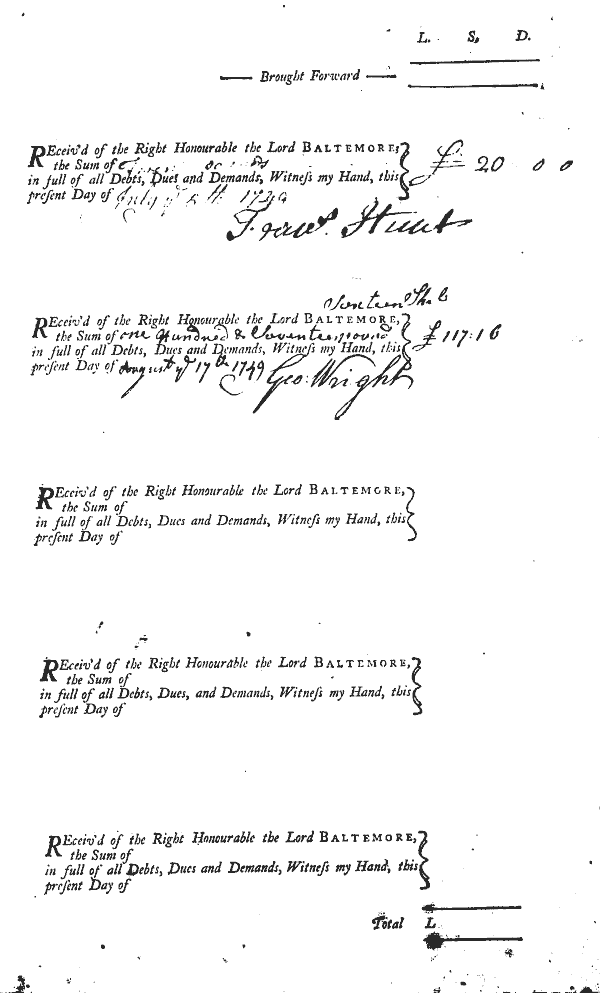 L. S, D.
Brought Forward
REceiv'd of the Right Honourable the Lord BALTEMORE,
the Sum of
in full of all Debts, Dues and Demands, Witneſs my Hand, this £ 20 0 0
preſent Day of July 1749
Hunt
REceiv'd of the Right Honourable the Lord BALTEMORE,
the Sum of one Hundred & Seventeen pound £ 117:16
in full of all Debts, Dues and Demands, Witneſs my Hand, this
preſent Day of August ye 17th 1749 Geo: Wright
REceiv'd of the Right Honourable the Lord BALTEMORE,
the Sum of
in full of all Debts, Dues and Demands, Witneſs my Hand, this
preſent Day of
REceiv'd of the Right Honourable the Lord BALTEMORE,
the Sum of
in full of all Debts, Dues, and Demands, Witneſs my Hand, this
preſent Day of
REceiv'd of the Right Honourable the Lord BALTEMORE,
the Sum of
in full of all Debts, Dues and Demands, Witneſs my Hand, this
preſent Day of
Total L